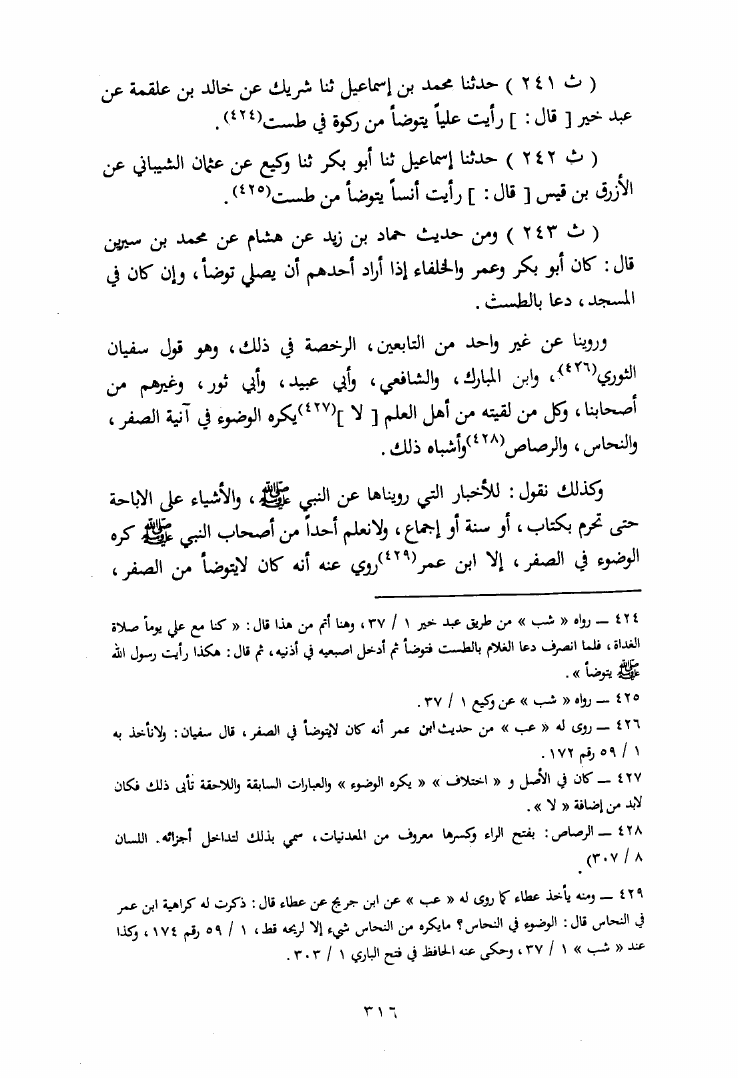 ( ث ٢٤١ ) حدثنا محمد بن إسماعيل ثنا شريك عن خالد بن علقمة عن
عبد خير [ قال : ] رأيت علياً يتوضأ من ركوة في طست(٤٢٤).
( ث ٢٤٢ ) حدثنا إسماعيل ثنا أبو بكر ثنا وكيع عن عثمان الشيباني عن
الأزرق بن قيس [ قال : ] رأيت أنساً يتوضأ من طست(٤٢٥).
( ث ٢٤٣ ) ومن حديث حماد بن زيد عن هشام عن محمد بن سيرين
قال : كان أبو بكر وعمر والخلفاء إذا أراد أحدهم أن يصلي توضأ ، وإن كان في
المسجد ، دعا بالطست .
وروينا عن غير واحد من التابعين ، الرخصة في ذلك ، وهو قول سفيان
الثوري(٤٢٦)، وابن المبارك ، والشافعي ، وأبي عبيد ، وأبي ثور ، وغيرهم من
أصحابنا ، وكل من لقيته من أهل العلم [ لا ](٤٢٧)يكره الوضوء في آنية الصفر ،
والنحاس ، والرصاص(٤٢٨)وأشباه ذلك .
وكذلك نقول : للأخبار التي رويناها عن النبي ﷺ ، والأشياء على الاباحة
حتى تحرم بكتاب ، أو سنة أو إجماع ، ولانعلم أحداً من أصحاب النبي ﷺ كره
الوضوء في الصفر ، إلا ابن عمر(٤٢٩)روي عنه أنه كان لايتوضأ من الصفر ،
٤٢٤ ــ رواه « شب » من طريق عبد خير ١ / ٣٧ ، وهنا أتم من هذا قال : « كنا مع علي يوماً صلاة
الغداة ، فلما انصرف دعا الغلام بالطست فتوضأ ثم أدخل اصبعيه في أذنيه ، ثم قال : هكذا رأيت رسول الله
ﷺ يتوضأ » .
٤٢٥ ــ رواه « شب » عن وكيع ١ / ٣٧ .
٤٢٦ ــ روى له « عب » من حديث ابن عمر أنه كان لايتوضأ في الصفر ، قال سفيان : ولانأخذ به
١ / ٥٩ رقم ١٧٢ .
٤٢٧ ــ كان في الأصل و « اختلاف » « يكره الوضوء » والعبارات السابقة واللاحقة تأبى ذلك فكان
لابد من إضافة « لا » .
٤٢٨ ــ الرصاص : بفتح الراء وكسرها معروف من المعدنيات ، سمي بذلك لتداخل أجزائه . اللسان
٨ / ٣٠٧) .
٤٢٩ ــ ومنه يأخذ عطاء كما روى له « عب » عن ابن جريج عن عطاء قال : ذكرت له كراهية ابن عمر
في النحاس قال : الوضوء في النحاس ؟ مايكره من النحاس شيء إلا لريحه قط ، ١ / ٥٩ رقم ١٧٤ ، وكذا
عند « شب » ١ / ٣٧ ، وحكى عنه الحافظ في فتح الباري ١ / ٣٠٣ .
٣١٦